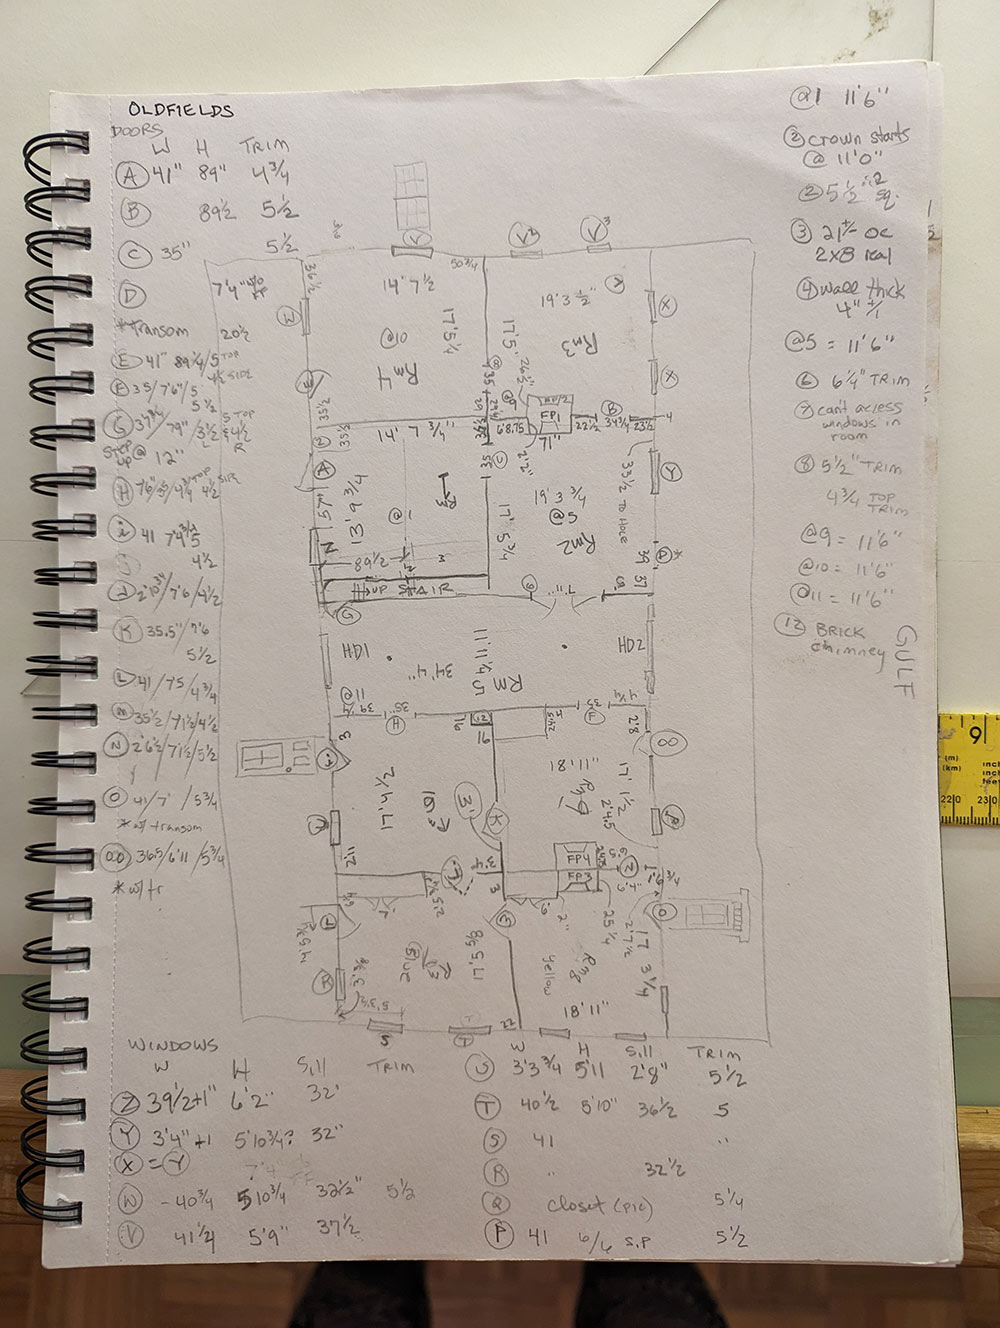 OLDFIELDS
DOORS
W H TRIM
A 41" 89" 4 3/4
B 89 1/2 5 1/2
C 35" 5 1/2
D 7'4"
*transom 20 1/2
E 41" 89 1/4 / 5 TOP
SIDE
F 35/7'6"/5
5 1/2
G 37 3/4 / 79" / 3 1/2
5 TOP
4 1/2
R
STEP UP @ 12"
H 4 3/4 TOP 4 1/2 SIDE
i 41
4 1/2
J 2'10 3/4 / 7'6 / 4 1/2
K 35.5" / 7'6
5 1/2
L 41 / 75 / 4 3/4
M 35 1/2 / 71 1/2 / 4 1/2
N 2'6 1/2 / 7'1 1/2 / 5 1/2
O 41/7' / 5 3/4
* w/ transom
OO 36.5/6'11 / 5 3/4
* w/ tr
@1 11'6"
2 crown starts
@ 11'0"
2 5 1/2" sq.
3 21 +/- oc
2x8 real
4 wall thick
4" +/-
@5 = 11'6"
6 6 1/4" TRIM
7 can't access
windows in
room
8 5 1/2" TRIM
4 3/4 TOP
TRIM
@9 = 11'6"
@10 = 11'6"
@11 = 11'6"
12 BRICK
chimney
GULF
V
V2
V3
36 1/2
50 3/4
14" 7 1/2
19'3 1/2"
W
@10
17'5 1/4
17'5"
Rm3
Rm4
X
X
35 1/2
26 1/2"
@9
FP2
FP1
B
35 1/2
14' 7 3/4"
6'8.75
71"
22 1/2
34 3/4
23 1/2
4
2'2"
A
C
35
Y
33 1/2 TO HOLE
57"
13' 9 3/4
@1
19' 3 3/4
@5
17' 5 3/4
Rm2
N
89 1/2
39
37
UP STAIR
G
7'11"
HD1
11'11 1/4
Rm 5
HD2
34'4"
@11
39 1/4
H
35"
12
16
35
F
4 3/4
3
16
2'8
OO
i
18'11"
17' 1 1/2
Rm 9
2'4.5
3'
K
P
2'11
FP4
FP3
Z
3
3/4
2"
25 1/4
2'7 1/2
O
Blue
17'5 5/8
Rm 8
Yellow
17 3 1/4
R
18'11"
S
WINDOWS
W H Sill TRIM
Z 39 1/2+1" 6'2" 32"
Y 3'4"+1 5'10 3/4? 32"
X = Y
7'4
W - 40 3/4 5'10 3/4 32 1/2" 5 1/2
V 41 1/4 5'9" 37 1/2
W H Sill TRIM
U 3'3 3/4 5'11 2'8" 5 1/2
T 40 1/2 5'10" 36 1/2 5
S 41 "
R " 32 1/2
Q closet (pic) 5 1/4
P 41 6/6 S.P 5 1/2
9
(m)
(km)
inc
220
230